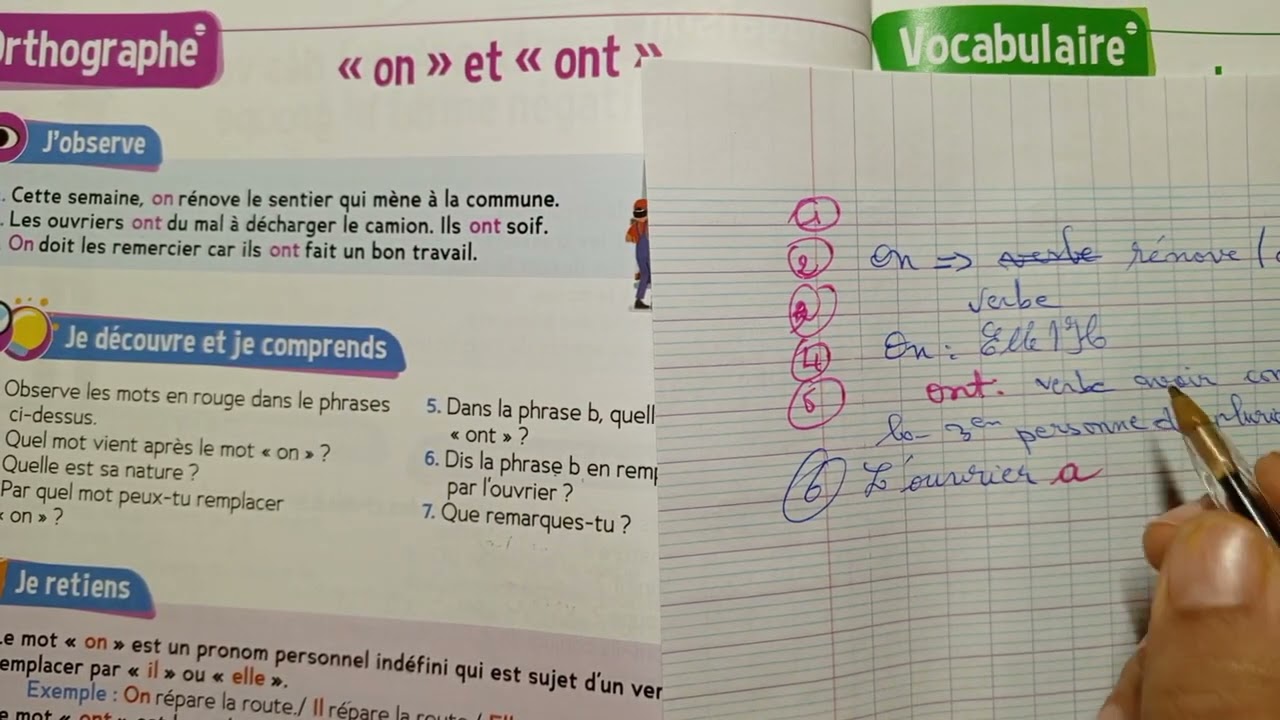 rthographe
« on » et « ont »
J'observe
. Cette semaine, on rénove le sentier qui mène à la commune.
. Les ouvriers ont du mal à décharger le camion. Ils ont soif.
On doit les remercier car ils ont fait un bon travail.
Je découvre et je comprends
Observe les mots en rouge dans le phrases
ci-dessus.
Quel mot vient après le mot « on » ?
Quelle est sa nature ?
Par quel mot peux-tu remplacer
« on » ?
5. Dans la phrase b, quell
« ont » ?
6. Dis la phrase b en remp
par l'ouvrier ?
7. Que remarques-tu ?
Je retiens
Le mot « on » est un pronom personnel indéfini qui est sujet d'un ver
emplacer par « il » ou « elle ».
Exemple : On répare la route./ Il répare la route./ Ell
e mot « ont »
Vocabulaire
1
2 on => verbe rénove (
verbe
4 On : Elle / Il
5 ont : verbe avoir con
la 3em personne du pluri
6 L'ouvrier a